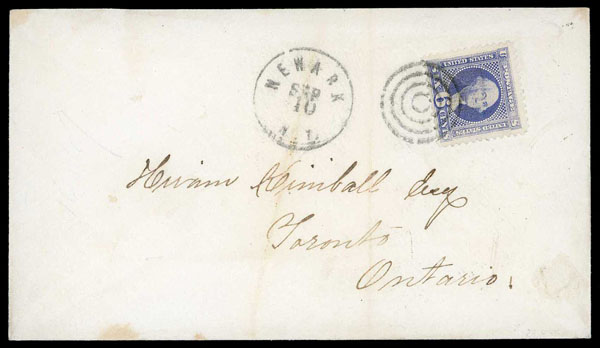 NEWARK
SEP
10
N.J.
UNITED STATES
POSTAGE
6
CENTS
UNITED STATES
Hiram Kimball Esq
Toronto
Ontario.